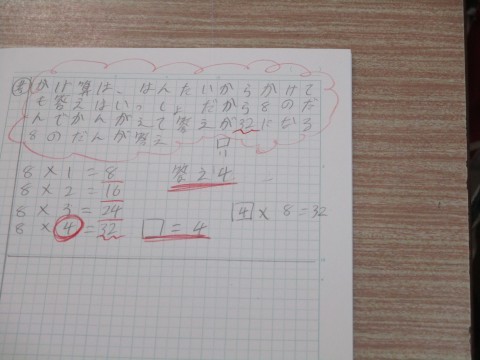 考 かけ算は、はんたいからかけて
も答えはいっしょ。だから8のだ
んでかんがえて答えが32になる
8のだんが答え
□
8×1=8
8×2=16
8×3=24
8×4=32
答え4
□=4
4×8=32